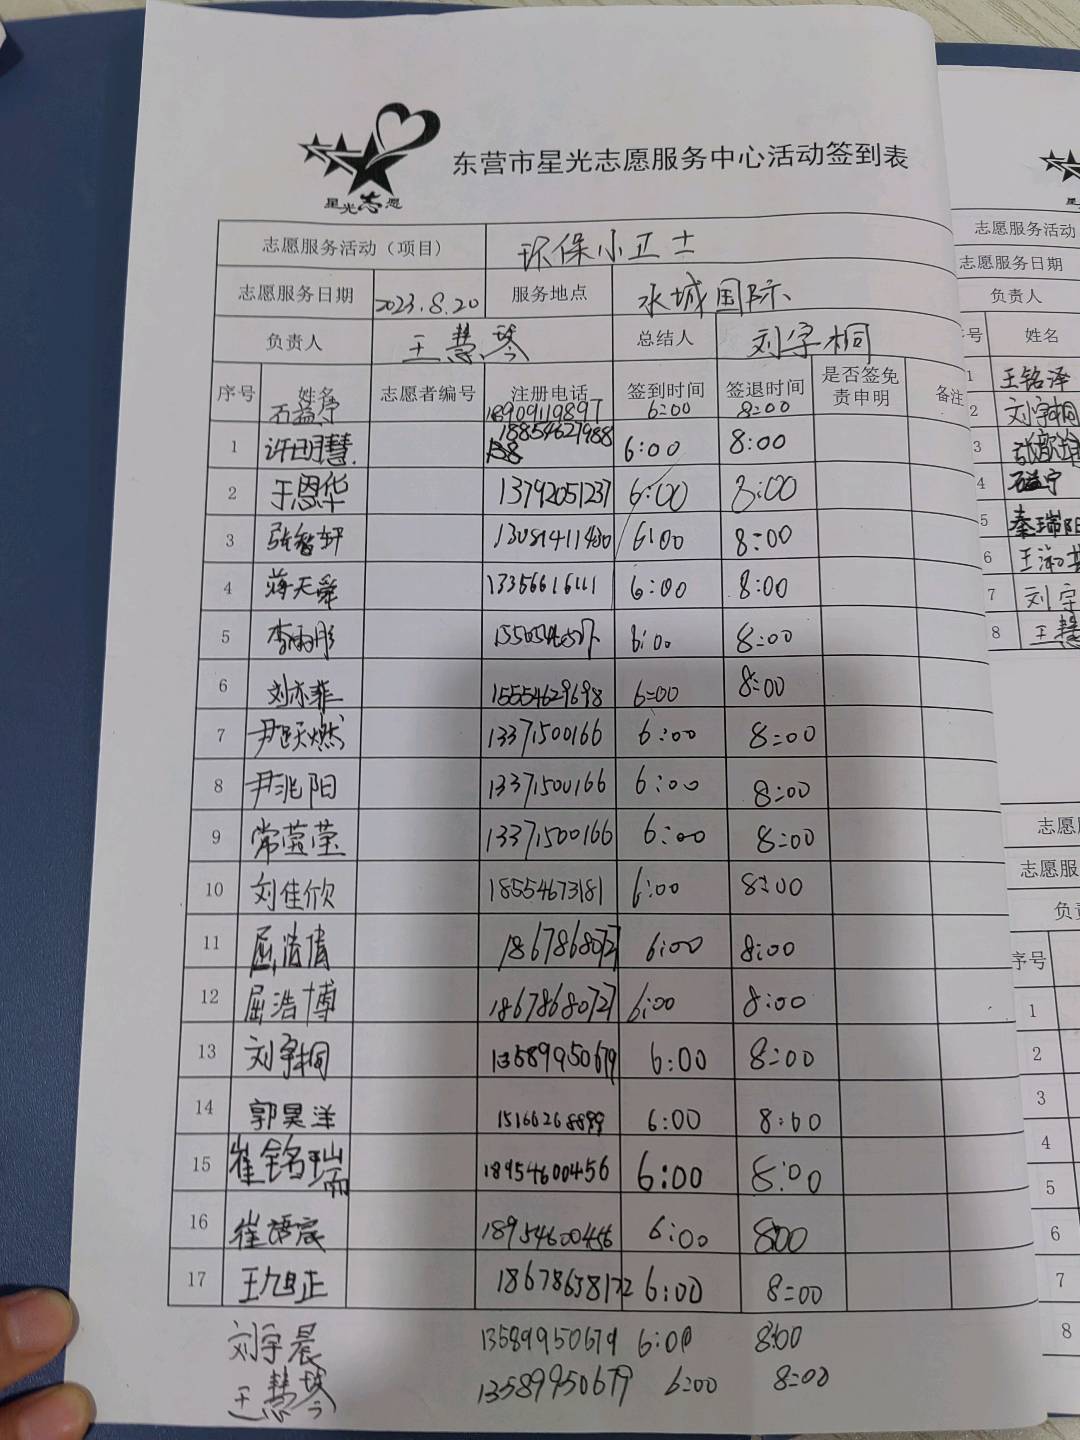 东营市星光志愿服务中心活动签到表
星光志愿
志愿服务活动（项目） 环保小卫士
志愿服务日期 2023.8.20 服务地点 水城国际
负责人 王慧琴 总结人 刘宇桐
序号 姓名 志愿者编号 注册电话 签到时间 签退时间 是否签免责申明 备注
石益宁 18909119897 6:00 8:00
1 许玥慧 18854627988 6:00 8:00
2 于恩华 13792051237 6:00 8:00
3 张智轩 6:00 8:00
4 蒋天舜 6:00 8:00
5 李雨彤 6:00 8:00
6 刘亦菲 15554629698 6:00 8:00
7 尹跃燃 13371500166 6:00 8:00
8 尹兆阳 13371500166 6:00 8:00
9 常莹莹 13371500166 6:00 8:00
10 刘佳欣 18554673181 6:00 8:00
11 屈浩倩 18678680727 6:00 8:00
12 屈浩博 18678680727 6:00 8:00
13 刘宇桐 13589950679 6:00 8:00
14 郭昊洋 15166268899 6:00 8:00
15 崔铭瑞 18954600456 6:00 8:00
16 崔语宸 18954600456 6:00 8:00
17 王旭正 18678638172 6:00 8:00
刘宇晨 13589950679 6:00 8:00
王慧琴 13589950679 6:00 8:00
志愿服务活动
志愿服务日期
负责人
序号 姓名
1 王铭泽
2 刘宇桐
3
4 石益宁
5 秦瑞阳
6
7 刘宇
8 王慧
志愿
志愿服
负责
序号
1
2
3
4
5
6
7
8